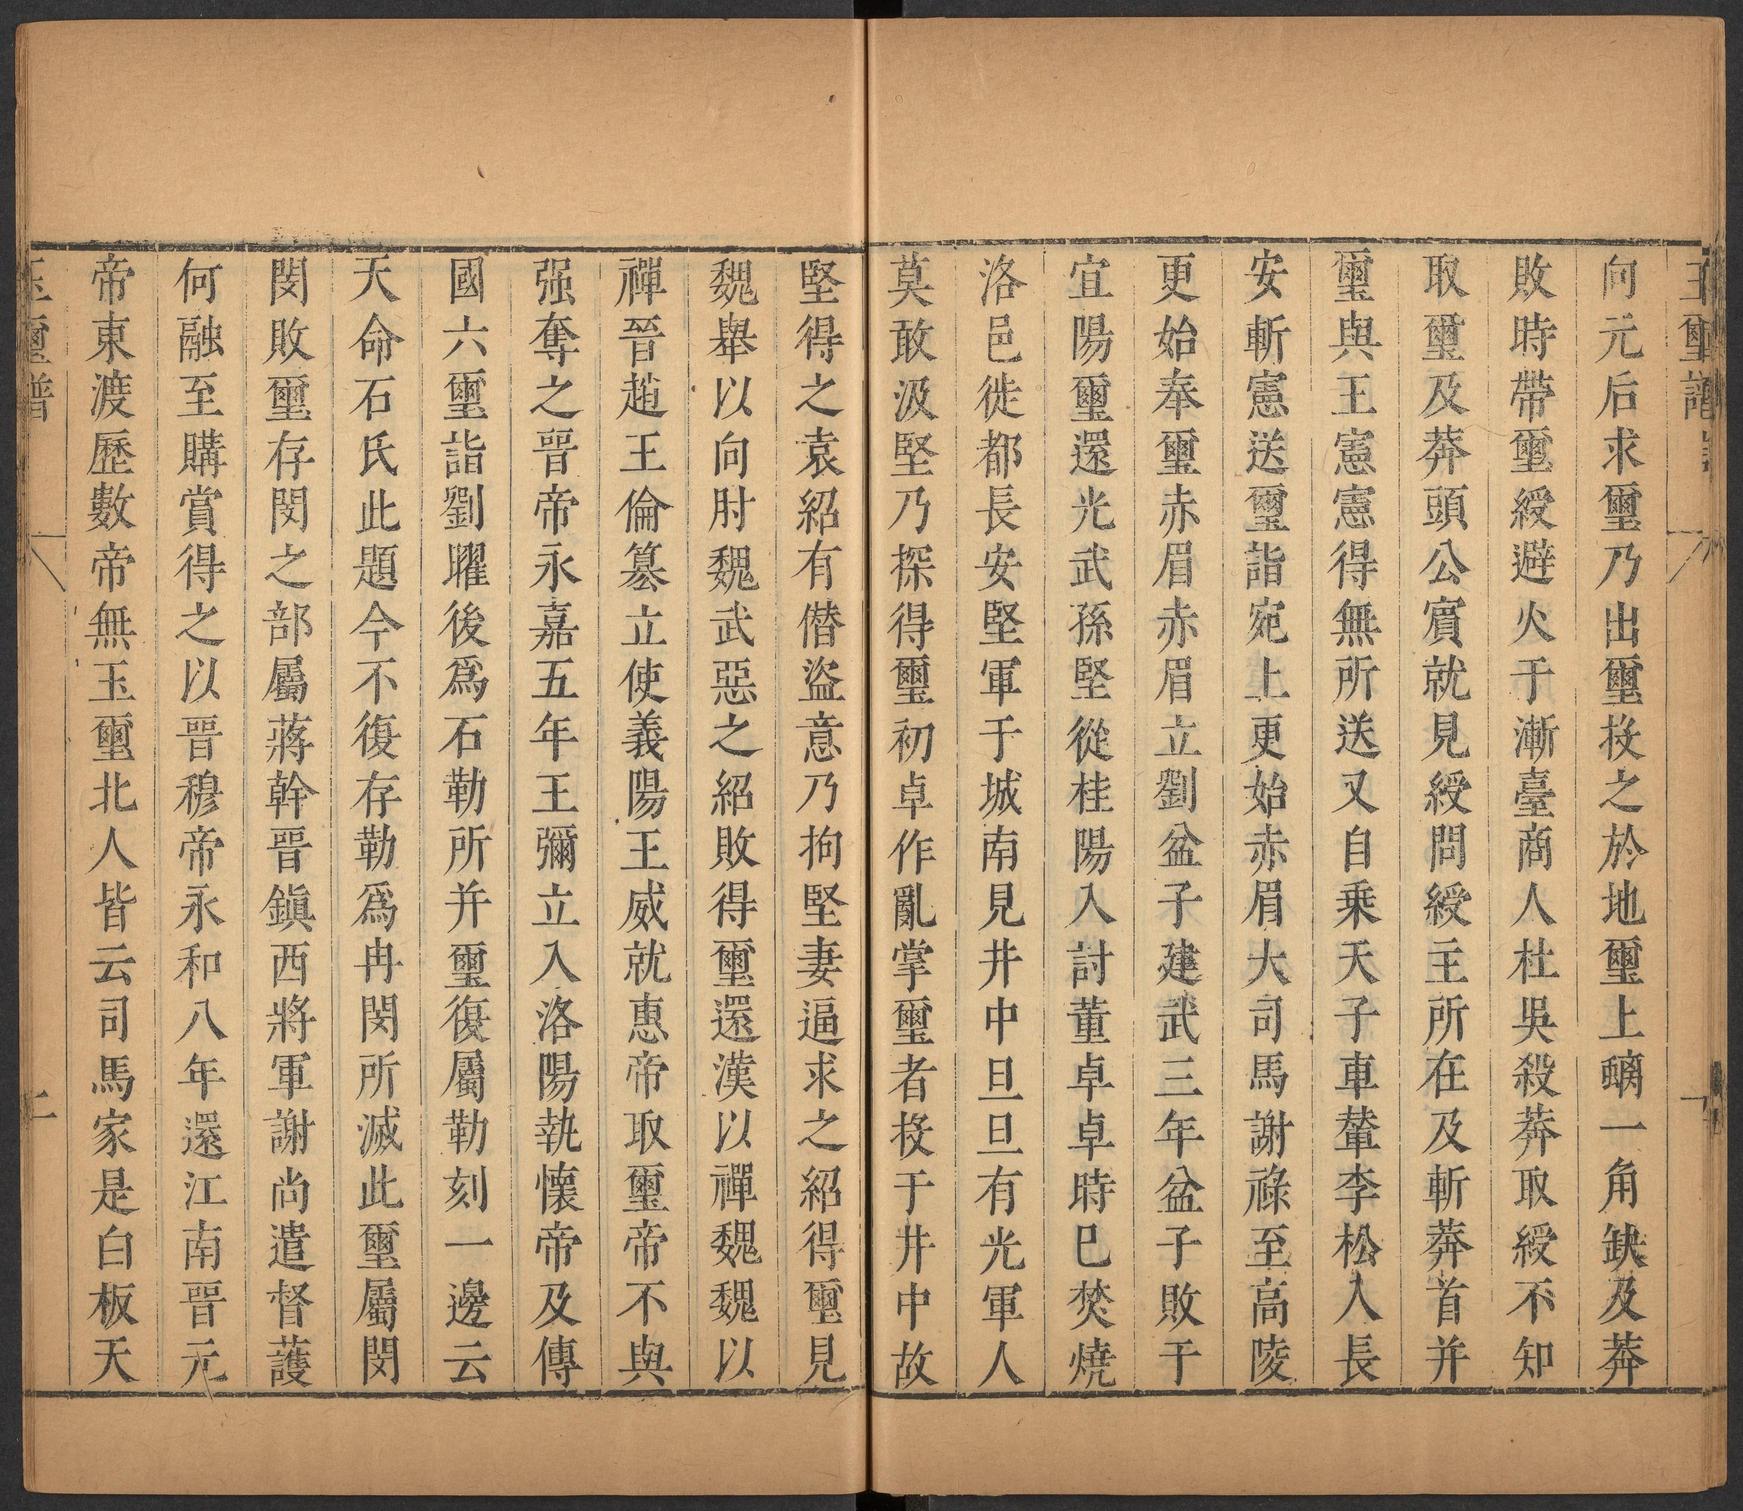 玉璽譜
一
向元后求璽乃出璽投之於地璽上螭一角缺及莽
敗時帶璽綬避火于漸臺商人杜吳殺莽取綬不知
取璽及莽頭公賓就見綬問綬主所在及斬莽首并
璽與王憲憲得無所送又自乘天子車輦李松入長
安斬憲送璽詣宛上更始赤眉大司馬謝祿至高陵
更始奉璽赤眉赤眉立劉盆子建武三年盆子敗于
宜陽璽還光武孫堅從桂陽入討董卓卓時巳焚燒
洛邑徙都長安堅軍于城南見井中旦旦有光軍人
莫敢汲堅乃探得璽初卓作亂掌璽者投于井中故
堅得之袁紹有僣盜意乃拘堅妻逼求之紹得璽見
魏舉以向肘魏武惡之紹敗得璽還漢以禪魏魏以
禪晉趙王倫簒立使義陽王威就惠帝取璽帝不與
强奪之晉帝永嘉五年王彌立入洛陽執懷帝及傳
國六璽詣劉曜後爲石勒所并璽復屬勒刻一邊云
天命石氏此題今不復存勒爲冉閔所滅此璽屬閔
閔敗璽存閔之部屬蔣幹晉鎭西將軍謝尚遣督護
何融至購賞得之以晉穆帝永和八年還江南晉元
帝東渡歷數帝無玉璽北人皆云司馬家是白板天
玉璽譜
二